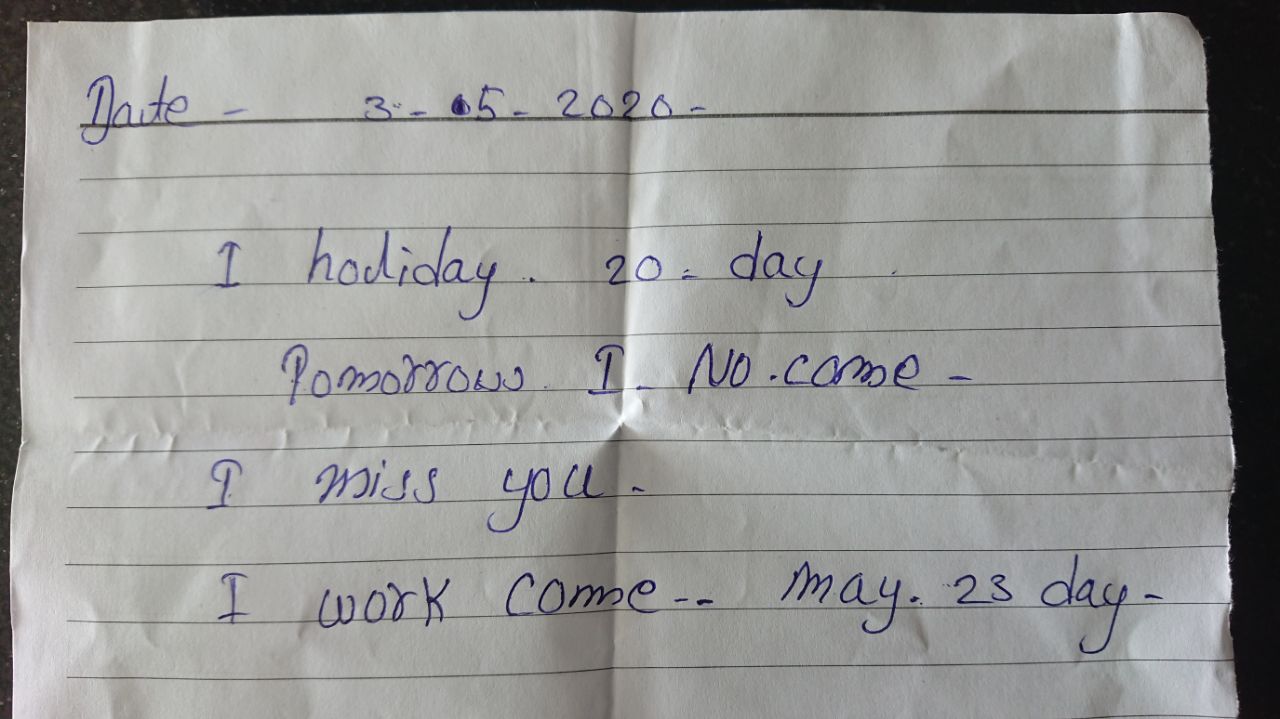 Date - 3 - 05 - 2020 -
I holiday. 20 - day
Tomorrow. I - No. come -
I miss you -
I work come -- may. 23 day -